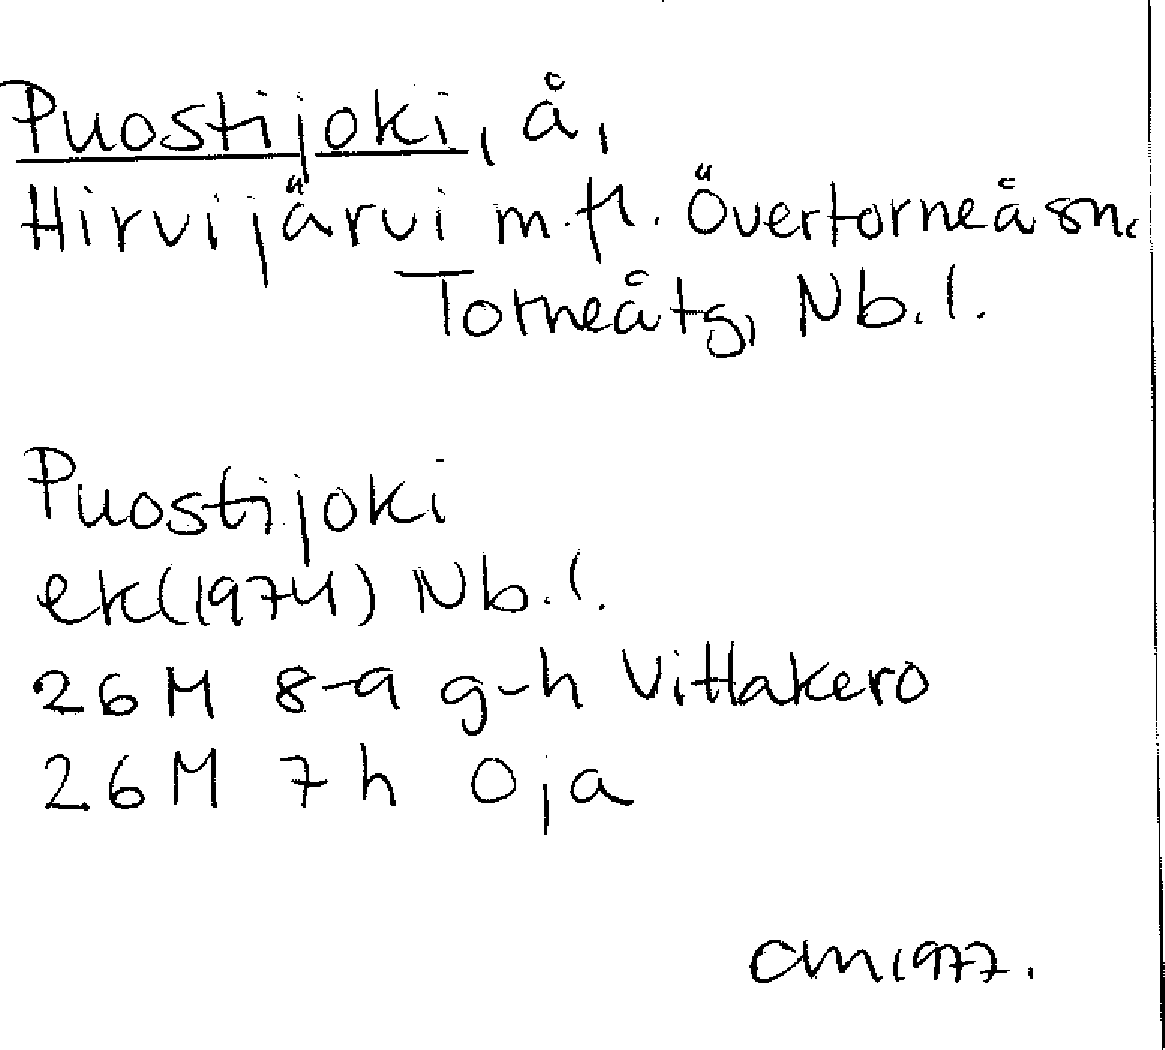 Puostijoki, å,
Hirvijärvi m.fl. Övertorneå sn.
Torneåtg, Nb.l.
Puostijoki
ek(1974) Nb.l.
26M 8-9 g-h Vittakero
26M 7h Oja
CM1977.